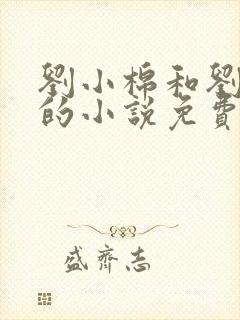 劉小棉和劉
的小說免費
盛齊志